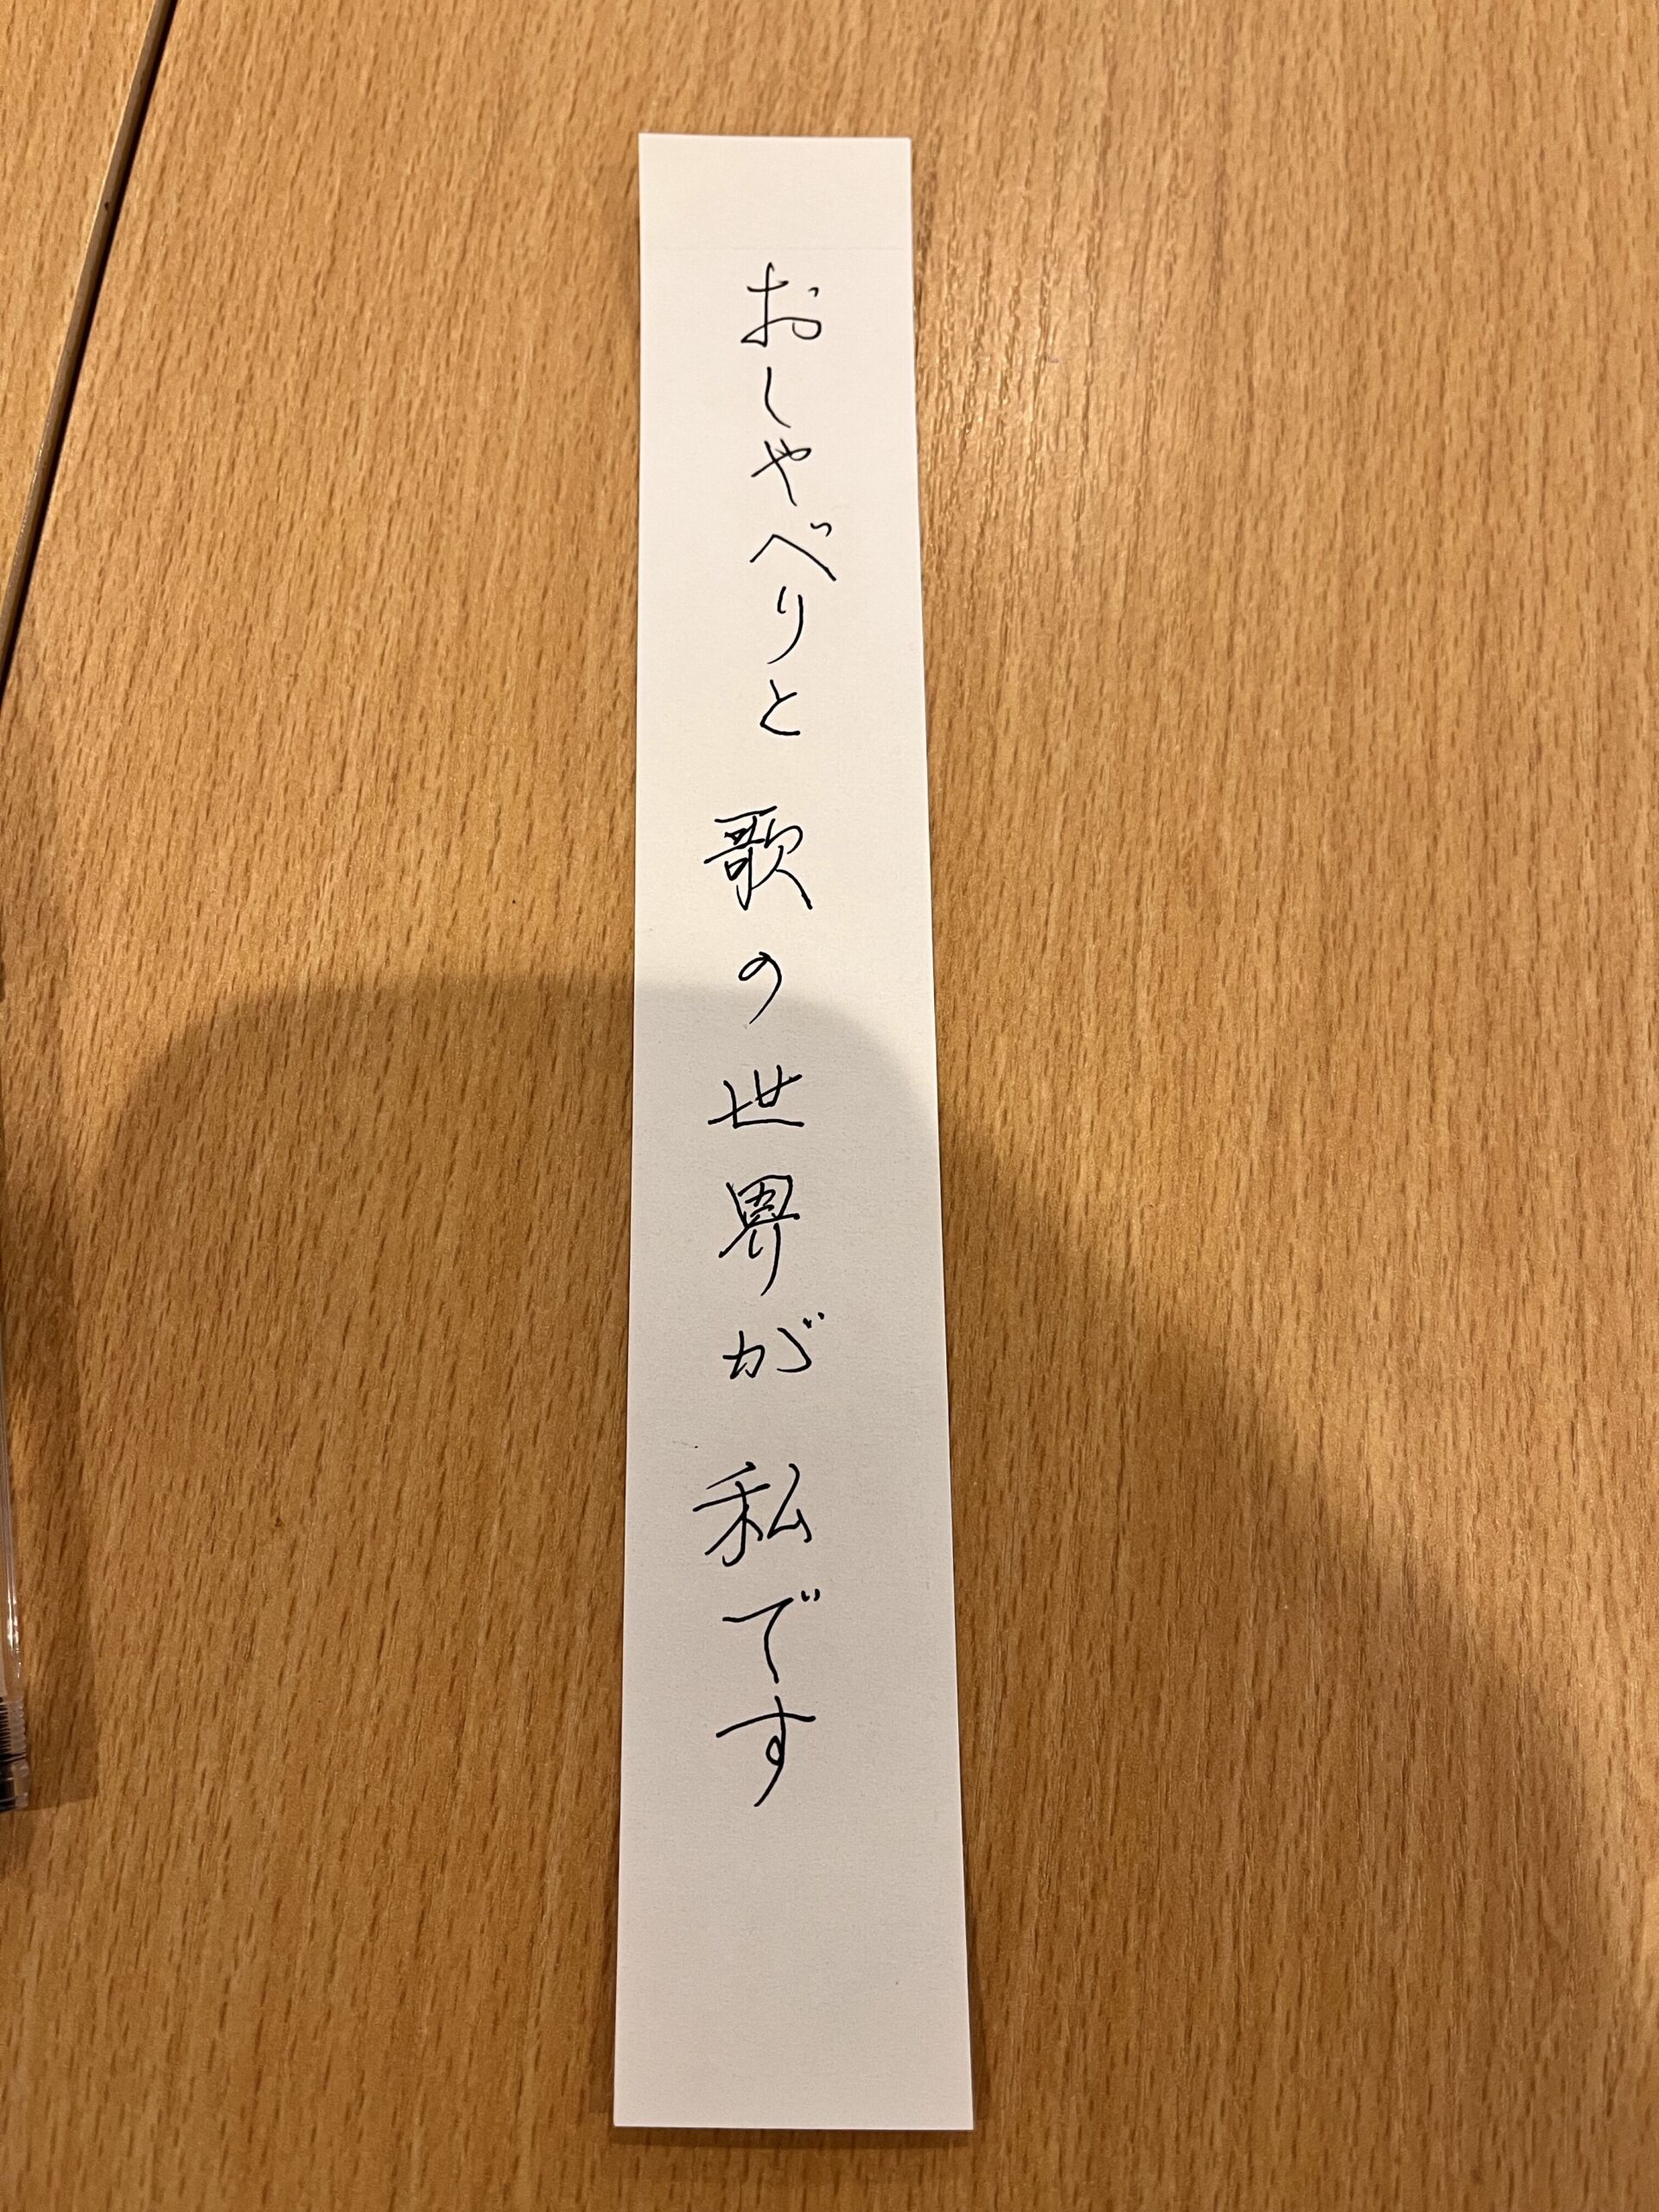 おしゃべりと歌の世界が私です